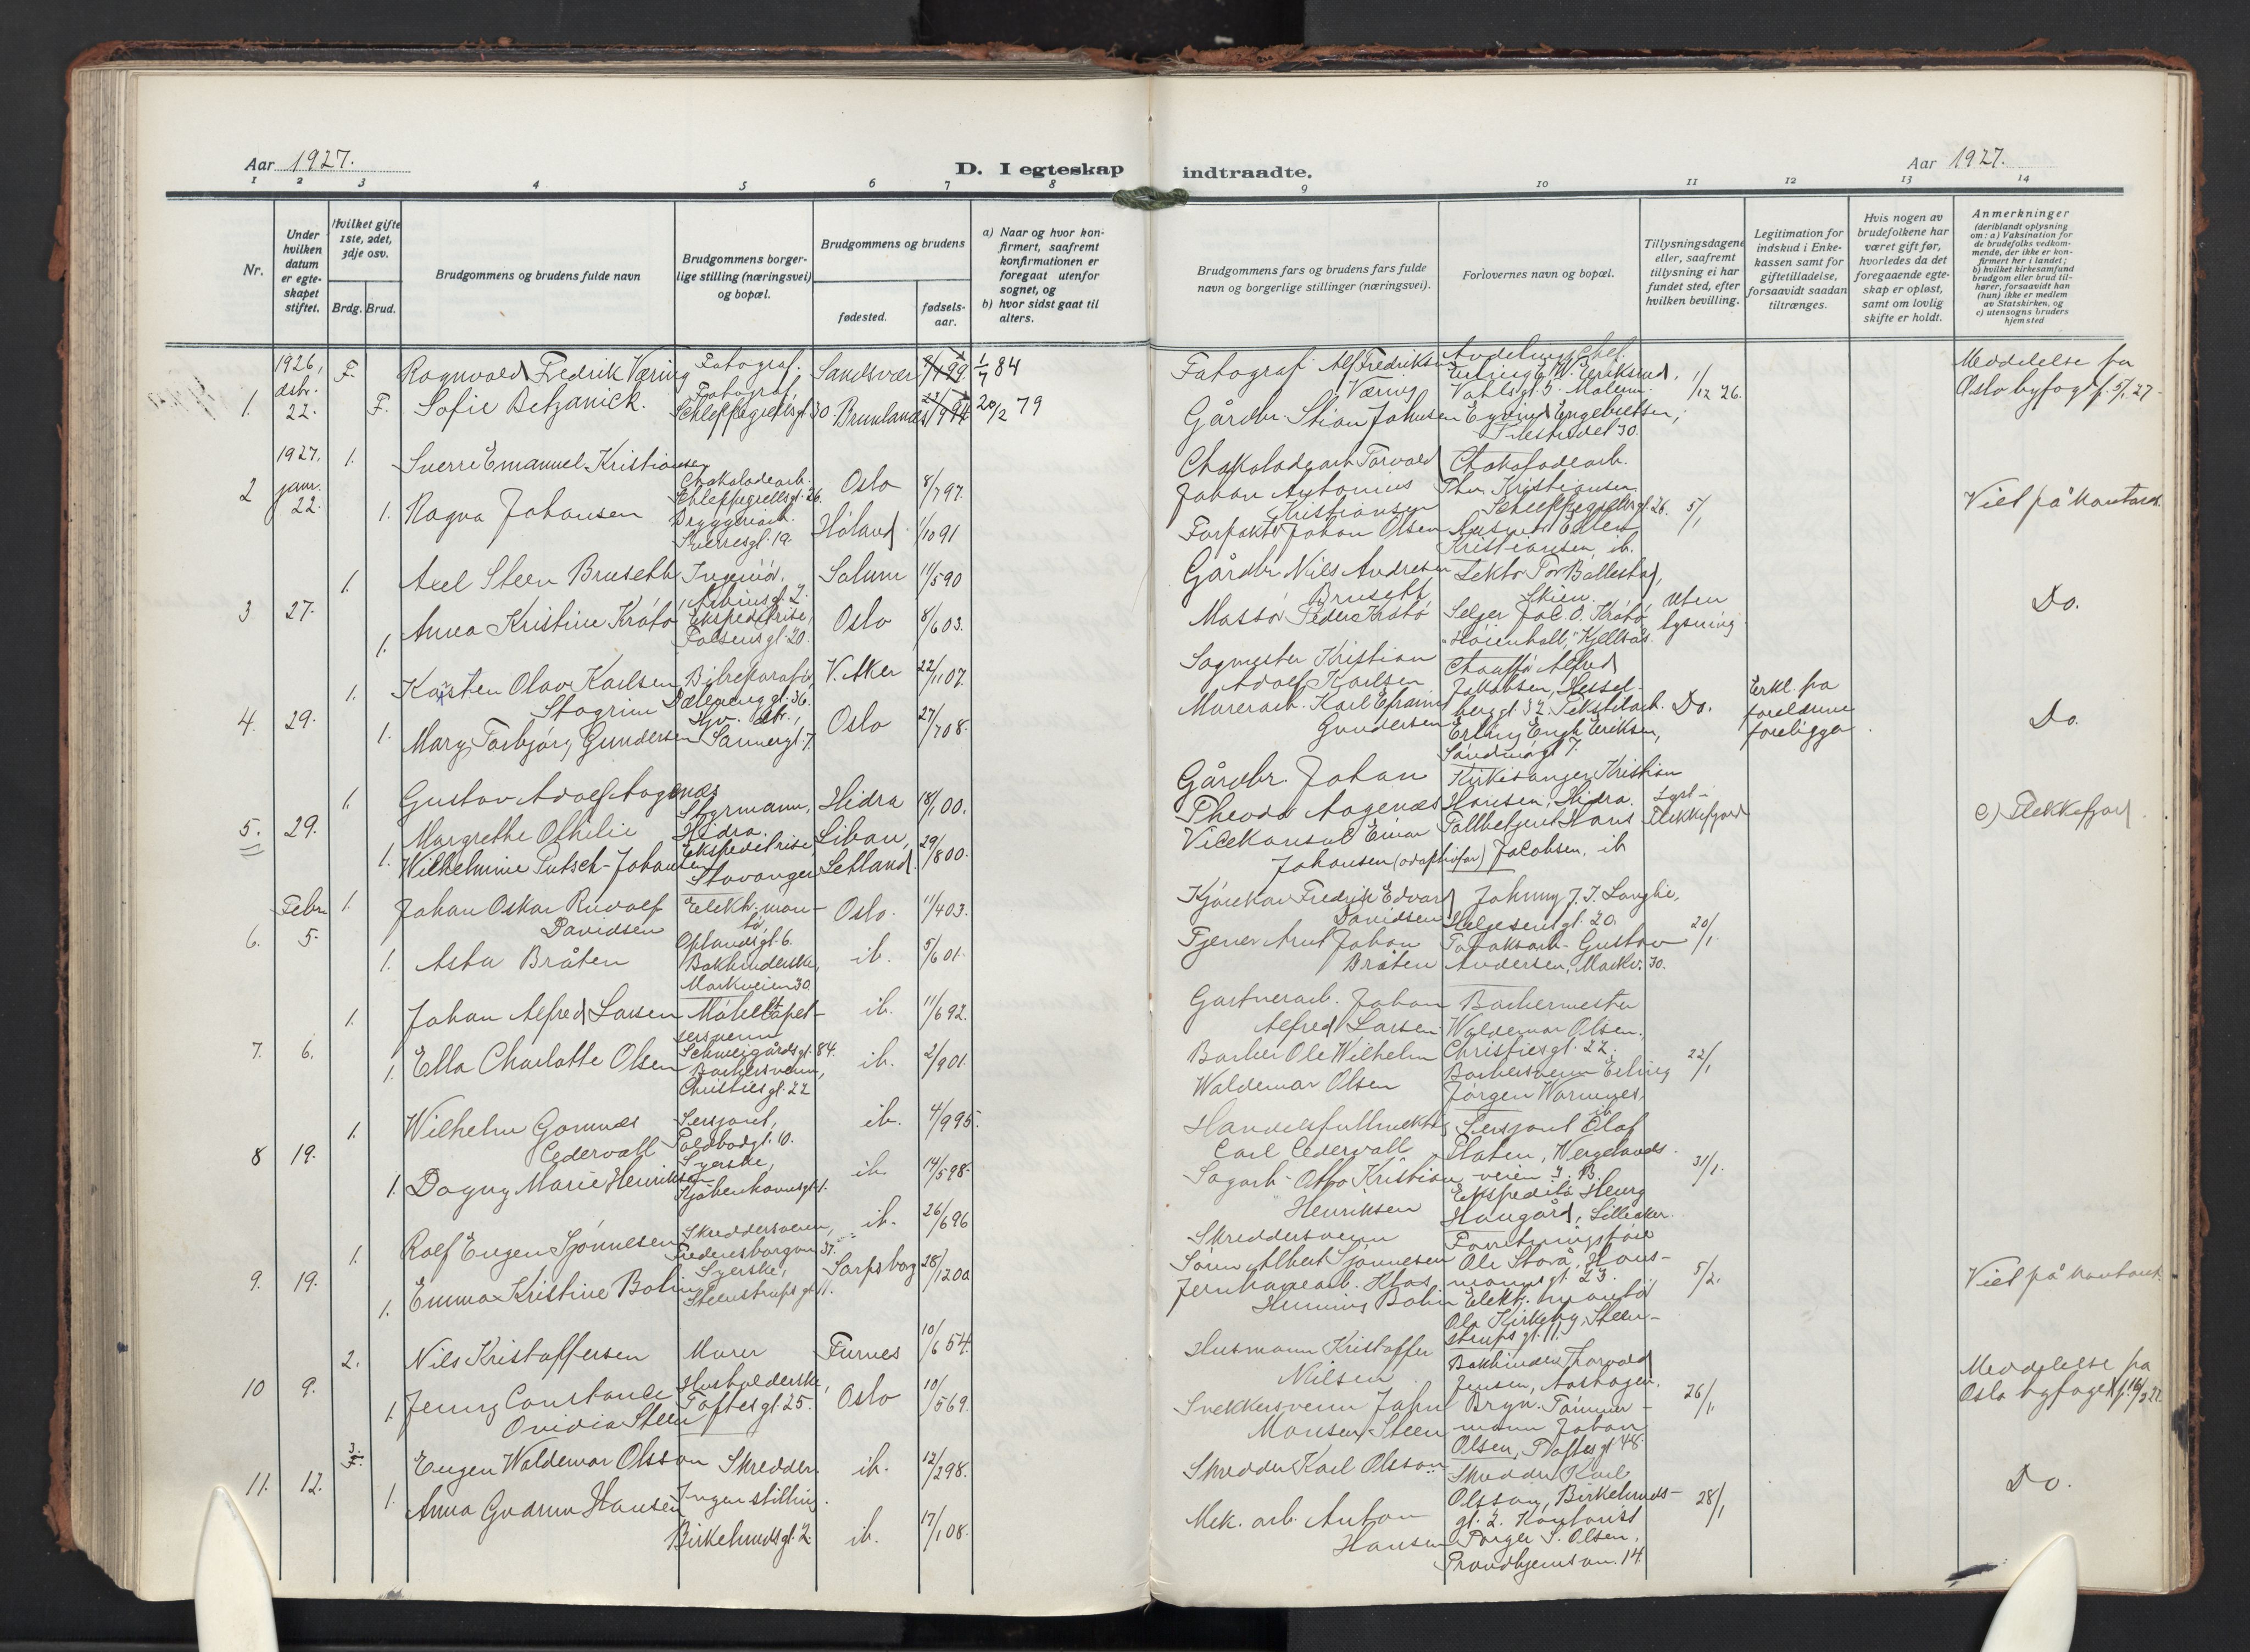 Aar 1927.
D. I egteskap
indtraadte.
Aar 1927.
1 2 3 4 5 6 7 8 9 10 11 12 13 14
Nr.
Under
hvilken
datum
er egte-
skapet
stiftet.
Hvilket gifte
1ste, 2det,
3dje osv.
Brdg. Brud.
Brudgommens og brudens fulde navn
Brudgommens borger-
lige stilling (næringsvei)
og bopæl.
Brudgommens og brudens
fødested.
fødsels-
aar.
a) Naar og hvor kon-
firmert, saafremt
konfirmationen er
foregaat utenfor
sognet, og
b) hvor sidst gaat til
alters.
Brudgommens fars og brudens fars fulde
navn og borgerlige stillinger (næringsvei).
Forlovernes navn og bopæl.
Tillysningsdagene
eller, saafremt
tillysning ei har
fundet sted, efter
hvilken bevilling.
Legitimation for
indskud i Enke-
kassen samt for
giftetilladelse,
forsaavidt saadan
tiltrænges.
Hvis nogen av
brudefolkene har
været gift før,
hvorledes da det
foregaaende egte-
skap er opløst,
samt om lovlig
skifte er holdt.
Anmerkninger
(deriblandt oplysning
om: a) Vaksination for
de brudefolks vedkom-
mende, der ikke er kon-
firmert her i landet;
b) hvilket kirkesamfund
brudgom eller brud til-
hører, forsaavidt han
(hun) ikke er medlem
av Statskirken, og
c) utensogns bruders
hjemsted
1.
1926,
dsbr.
22.
F.
F.
Ragnvald Fredrik Væring
Sofie Betzanick.
Fotograf.
Fotograf
Schleppegrellsgt. 30
Sandsvær
Brunlanes
1/7 84
20/2 79
Fotograf Alf Fredriksen
Væring
Gårdbr. Stian Johnsen
Avdelingschef
Erling W. Eriksrud,
Vahlsgt. 5. Malerm.
Eyvind Engebretsen,
30.
1/12 26.
Meddelelse fra
Oslo byfogd f. 5/1 27.
2
1927.
janr.
22.
1.
1.
Sverre Emanuel Kristiansen
Ragna Johansen
Chokoladearb.
Schleppegrellsgt. 26.
Bryggeriarb.
Sverresgt. 19.
Oslo
Høland
8/7 97.
1/10 91
Chokoladearb Torvald
Johan Antonius
Kristiansen
Forpakter Johan Olsen
Chokoladearb.
Thv. Kristiansen
Schleppegrellsgt. 26.
Kristiansen, ib.
5/1
Viet på kontoret.
3
27.
1.
1.
Axel Steen Brusetb
Anna Kristine Krátó
Ingeniør,
Ekspeditrise,
Falsensgt. 20.
Solum
Oslo
11/5 90
8/6 03.
Gårdbr Nils Andresen
Brusett
Massør Peder Krátó
Lektor Tor Ballestad,
Skien.
Selger Jac. O. Krátó
"Høienhall," Kjellsås.
Uten
lysning
Do.
4.
29.
1.
1.
Karsten Olav Karlsen
Stagrim
Mary Torbjørg Gundersen
Bilreparatør
Dælenenggt. 36.
Syv. arb.,
Sannergt. 7.
V. Aker
Oslo
22/11 07.
27/7 08.
Sagmester Kristian
Adolf Karlsen
Murerarb. Karl Efraim
Gundersen
Chauffør Alfred
Jakobsen, Hessel-
berggt. 32. Tekstilarb.
Erling Engh Eriksen,
7.
Do.
Erkl. fra
foreldrene
foreligger
Do.
5.
29.
1.
1.
Gustav Adolf Aagenæs
Margrethe Othilie
Wilhelmine Putsch-Johansen
Styrmann,
Hidra.
Ekspeditrise,
Stavanger
Hidra
Libau,
Letland.
18/1 00.
29/8 00.
Gårdbr. Johan
Theodor Aagenæs
Vicekonsul Einar
Johansen (adoptivfar)
Kirkesanger Kristian
Hansen, Hidra.
Tollbetjent Hans
Jacobsen, ib
Lyst-
Flekkefjord
c) Flekkefjord.
6.
Febr.
5.
1.
1.
Johan Oskar Rudolf
Davidsen
Asta Bråten
Elektr. mon-
tør
Oplandsgt. 6.
Bokbinderske,
Markveien 30.
Oslo.
ib.
11/4 03.
5/6 01.
Kjørekar Fredrik Edvard
Davidsen
Tjener Arnt Johan
Bråten
Johnny J. J. Langlie,
Helgesensgt. 20.
Tobaksarb. Gustav
Andersen, Markv. 30.
20/1.
7.
6.
1.
1.
Johan Alfred Larsen
Ella Charlotte Olsen
Møbeltapet-
sersvenn
Schweigårdsgt. 84.
Barbersvenn,
Christiesgt. 22
ib.
ib.
11/6 92.
2/9 01.
Gartnerarb. Johan
Alfred Larsen
Barber Ole Wilhelm
Waldemar Olsen
Barbermester
Waldemar Olsen,
Christiesgt. 22.
Barbersvenn Erling
Jørgen Warnnes,
ib.
22/1
8
19.
1.
1.
Wilhelm Gomnæs
Cedervall
Dagny Marie Henriksen
Sersjant,
Toldbodgt. 10.
Syerske,
Kjøbenhavnsgt. 1.
ib.
ib.
4/9 95.
14/5 98.
Handelsfullmektig
Carl Cedervall
Sagarb. Otto Kristian
Henriksen
Sersjant Olaf
Platen, Wergelands-
veien 3. B.
Ekspeditør Henry
Haugård, Lilleaker.
31/1.
9.
19.
1.
1.
Rolf Eugen Sjønnesen
Emma Kristine Bolin
Skreddersvenn,
Fredensborgvn. 37.
Syerske,
Steenstrups gt. 11.
ib.
Sarpsborg
26/6 96
28/12 00
Skreddersvenn
Søren Albert Sjønnesen
Jernvarearb. Klas
Henning Bolin
Forretningsfører
Ole Storå, Haus-
mannsgt. 23.
Elektr. montør
Ole Kirkeby, Steen-
strupsgt. 11.
5/2.
Viet på kontoret.
10
9.
2.
1.
Nils Kristoffersen
Jenny Constance
Ovidia Steen
Murer
Husholderske,
Toftesgt. 25.
Furnes
Oslo
10/6 54.
10/5 69.
Husmann Kristoffer
Nilsen
Snekkersvenn John
Monsen Steen
Bokbinder Thorvald
Jensen, Aashagen,
Bryn. Tømmer-
mann Johan
Olsen, Toftesgt. 48.
26/1
Meddelelse fra
Oslo byfoged f. 16/2 27.
11.
12.
3.
F.
1.
Eugen Waldemar Olsson
Anna Gudrun Hansen
Skredder.
Ingen stilling.
Birkelundsgt. 2.
ib.
ib.
12/2 98.
17/1 08.
Skredder Karl Olsson
Mek. arb. Anton
Hansen
Skredder Karl
Olsson, Birkelunds-
gt. 2. Kontorist
Torger S. Olsen,
Trondhjemsvn. 14.
28/1
Do.